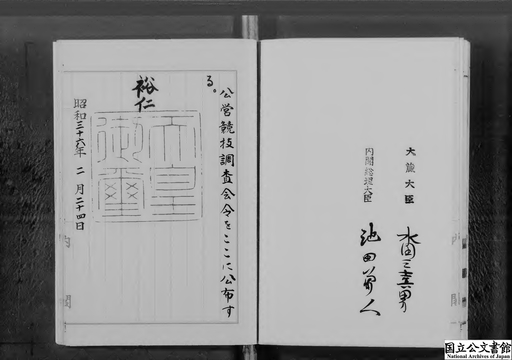 大蔵大臣 水田三喜男
内閣総理大臣 池田勇人
公営競技調査会令をここに公布す
る。
裕仁
天皇
御璽
昭和三十六年 二 月二十四日
国立公文書館
National Archives of Japan